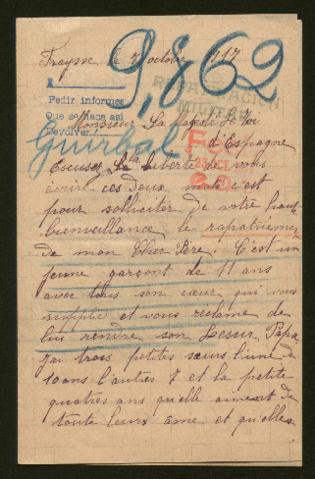 Fraysse le 7 octobre 1917
9,862
REPARACION
MILITAR
Pedir informes
Que se haga asi
Devolver
Monsieur Sa majesté Le Roi
d'Espagne
Guirbal
Escusez La liberté de vous
écrire ces deux mots c'est
pour solliciter de votre haute
bienveillance le rapatriement
de mon Cher Père. C'est un
jeune garçont de 11 ans
avec tous son cœur qui vous
supplie et vous réclame de
lui rendre son Papa
j'ai trois petites sœurs l'une à
10 ans l'autres 7 et la petite
quatres ans qu'elle aiment de
toute leurs âme et qu'elles